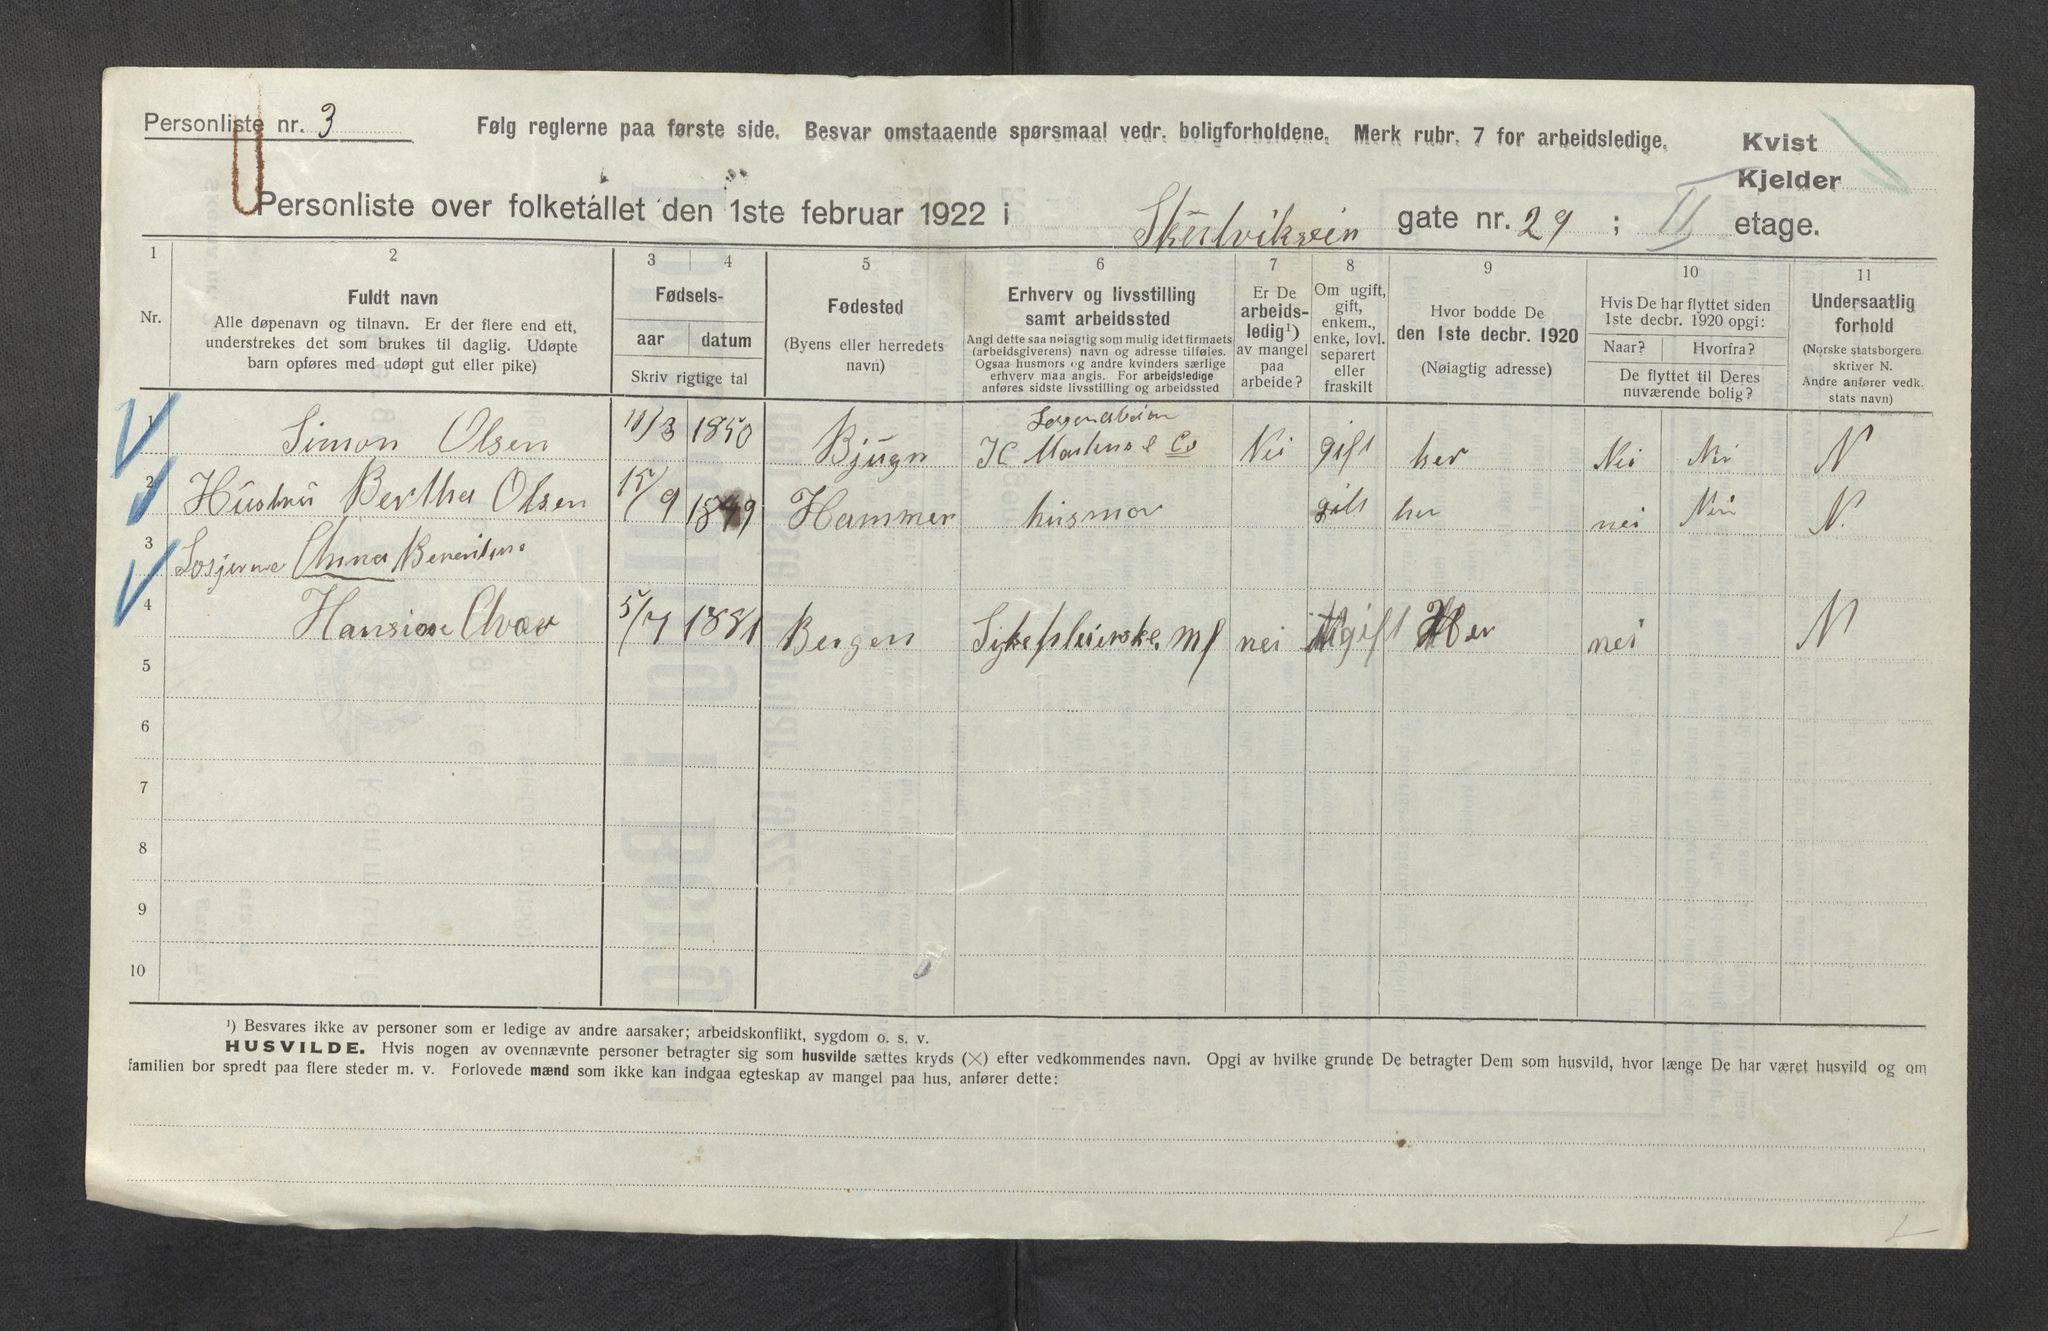 Personliste nr. 3
Følg reglerne paa første side. Besvar omstaaende spørsmaal vedr. boligforholdene. Merk rubr. 7 for arbeidsledige.
Kvist
Kjelder
Personliste over folketallet den 1ste februar 1922 i Skutviksvein gate nr. 29 ; II etage.
1 2 3 4 5 6 7 8 9 10 11
Nr.
Fuldt navn
Alle døpenavn og tilnavn. Er der flere end ett,
understrekes det som brukes til daglig. Udøpte
barn opføres med udøpt gut eller pike)
Fødsels-
aar datum
Skriv rigtige tal
Fødested
(Byens eller herredets
navn)
Erhverv og livsstilling
samt arbeidssted
Angi dette saa nøiagtig som mulig idet firmaets
(arbeidsgiverens) navn og adresse tilføies.
Ogsaa husmors og andre kvinders særlige
erhverv maa angis. For arbeidsledige
anføres sidste livsstilling og arbeidssted
Er De
arbeids-
ledig¹)
av mangel
paa
arbeide?
Om ugift,
gift,
enkem.,
enke, lovl.
separert
eller
fraskilt
Hvor bodde De
den 1ste decbr. 1920
(Nøiagtig adresse)
Hvis De har flyttet siden
1ste decbr. 1920 opgi:
Naar? Hvorfra?
De flyttet til Deres
nuværende bolig?
Undersaatlig
forhold
(Norske statsborgere
skriver N.
Andre anfører vedk.
stats navn)
1 Simon Olsen 11/3 1850 Bjugn K Martens & Co Nei gift her Nei Nei N
2 Hustru Bertha Olsen 15/9 1849 Hammer husmor gift her nei Nei N.
3 Losjerene Anna
4 Hansine 5/7 1881 Bergen Sykepleierske. nei ugift Her nei N
5
6
7
8
9
10
¹) Besvares ikke av personer som er ledige av andre aarsaker; arbeidskonflikt, sygdom o. s. v.
HUSVILDE. Hvis nogen av ovennævnte personer betragter sig som husvilde sættes kryds (×) efter vedkommendes navn. Opgi av hvilke grunde De betragter Dem som husvild, hvor længe De har været husvild og om
familien bor spredt paa flere steder m. v. Forlovede mænd som ikke kan indgaa egteskap av mangel paa hus, anfører dette: